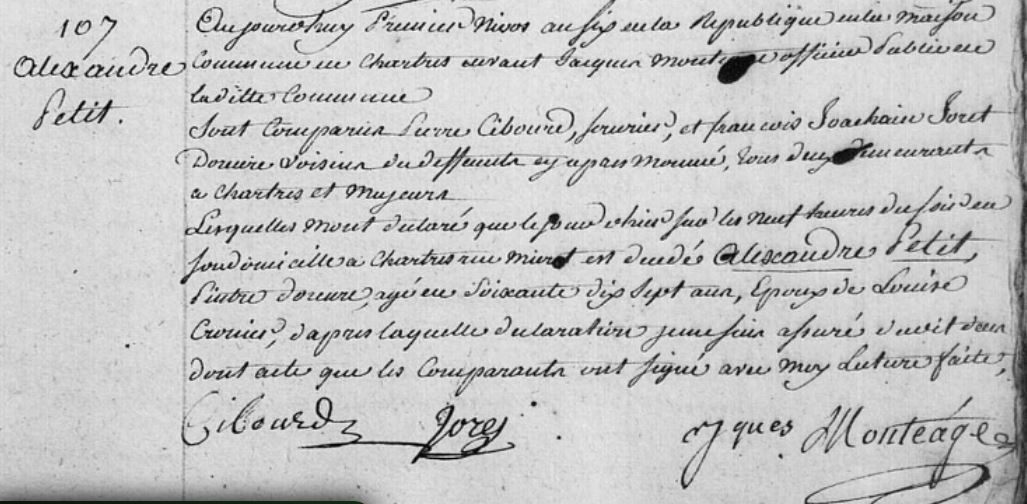 107
Alexandre
Petit.
Aujourdhuy Premier Nivos an six de la Republique en la maison
Commune de Chartres devant Jacques Monteage officier Public de
la ditte Commune
Sont Comparus Pierre Cibourd, serurier, et francois Joachain Joret
Doreure voisins du deffunts cy apres nommé, tous deux demeurants
a Chartres et Majeurs
Lesquelles m'ont declaré que le jour d'hier sur les neuf heures du soir en
son domicille a Chartres rue muret est decedé Alexandre Petit,
Pintre doreure, agé de Soixante dix Sept ans, Epoux de Louise
, d'apres laquelle declaration je me suis assuré duudit deces
dont acte que les Comparants ont signé avec moy Lecture faite,
Cibourd Jores Jques Monteâge